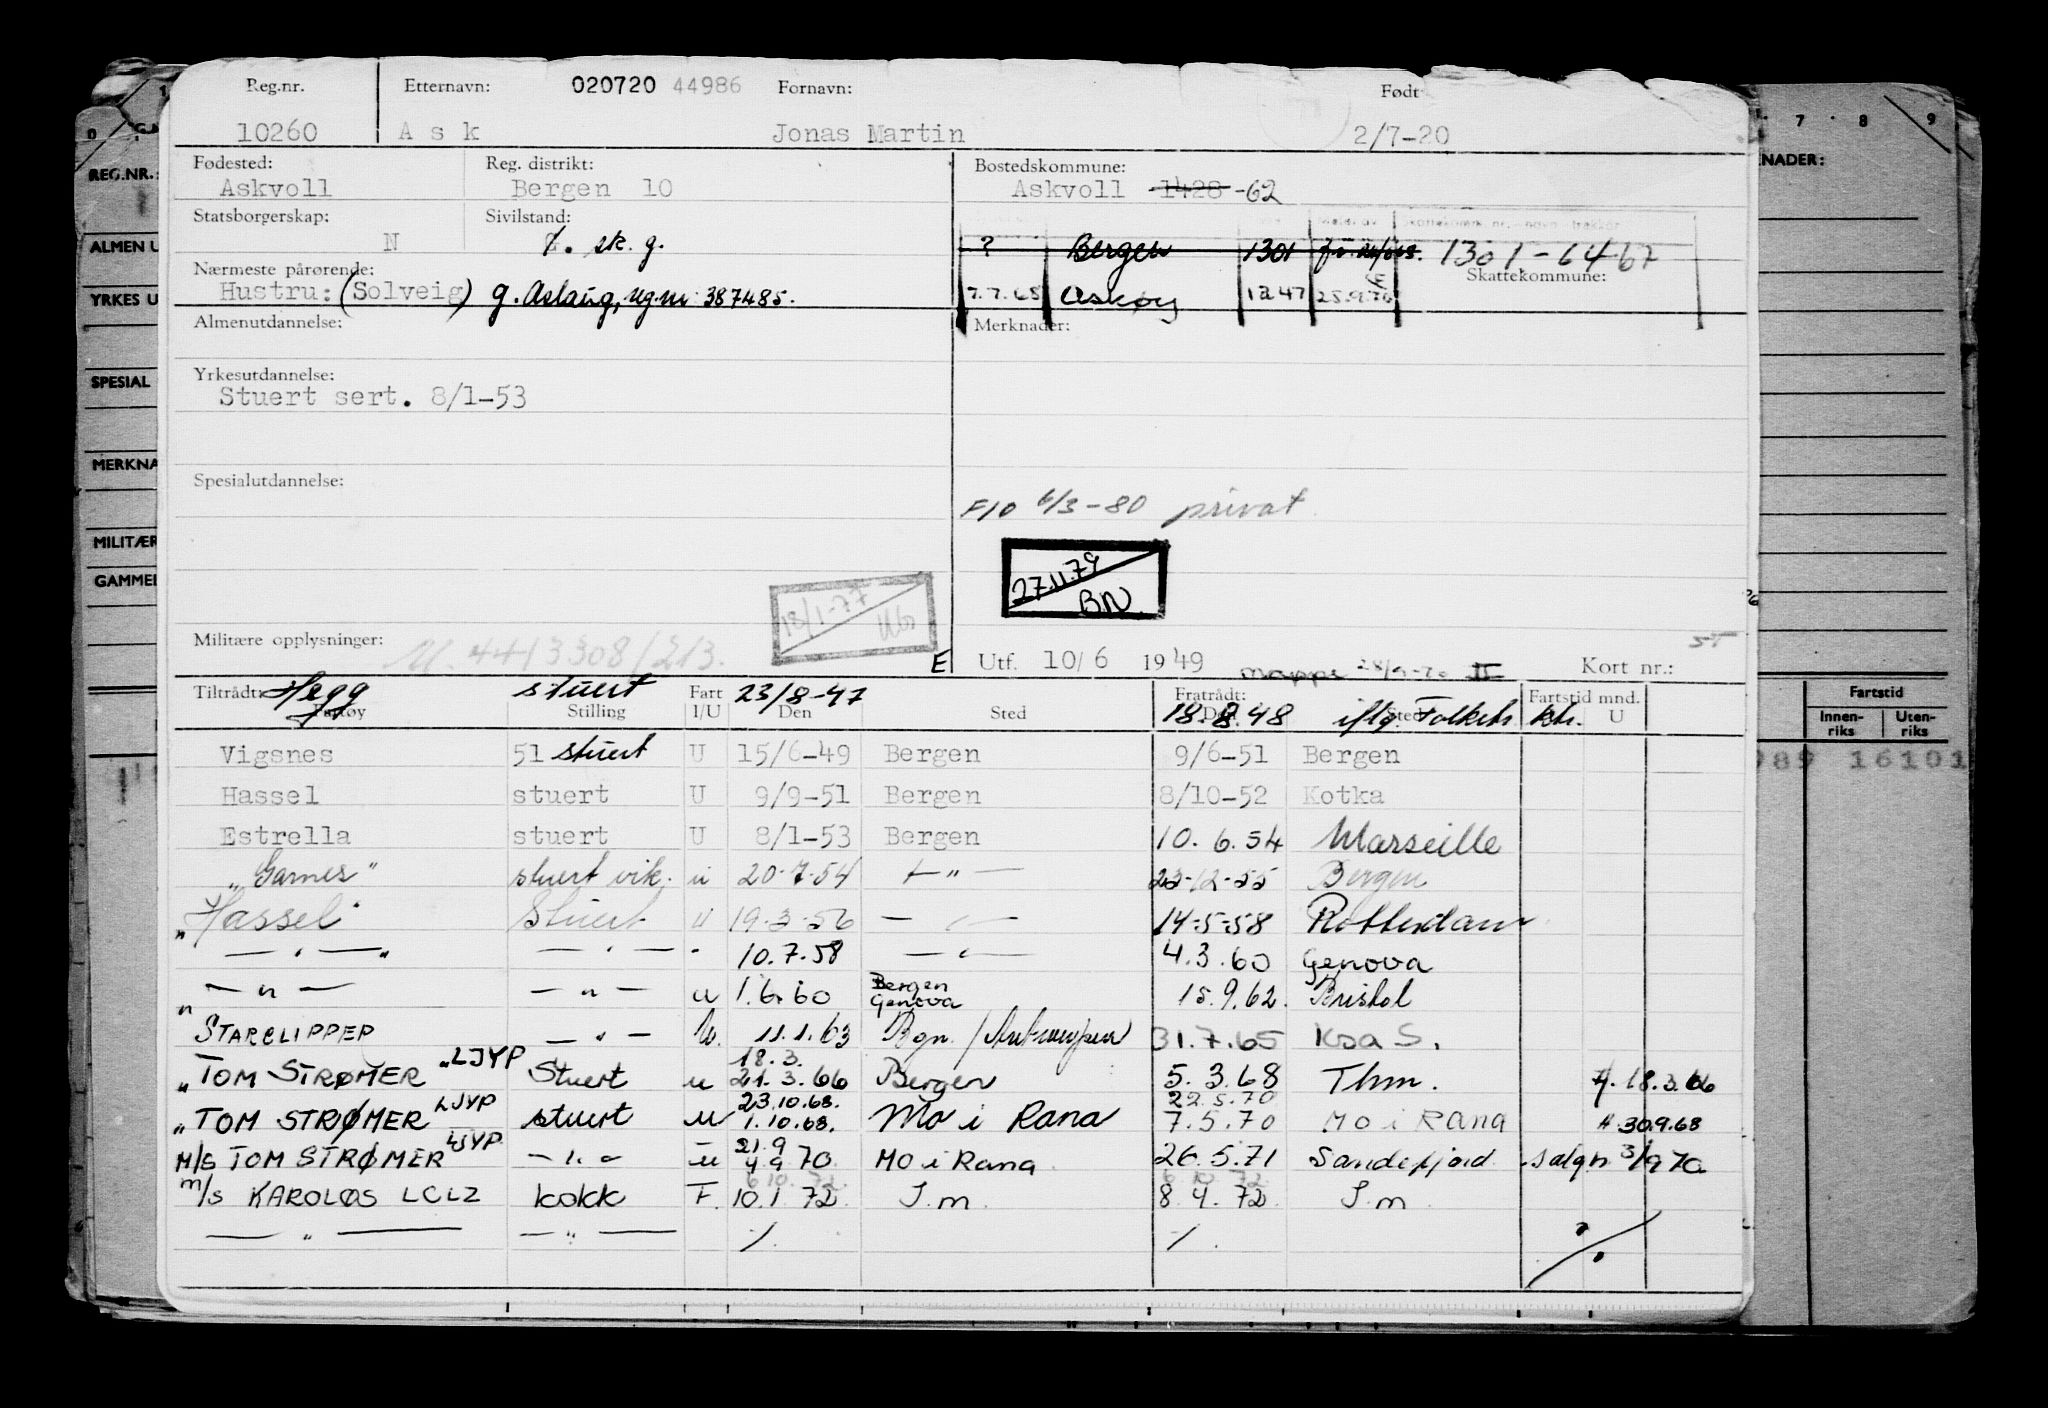 Reg.nr. Etternavn: 020720 44986 Fornavn: Født
10260 Ask Jonas Martin 2/7-20
Fødested: Reg. distrikt: Bostedskommune:
Askvoll Bergen 10 Askvoll -1428- -62
Statsborgerskap: Sivilstand:
N sk. g.
? Bergen 1301 1301-64-67
Nærmeste pårørende: Skattekommune:
Hustru: (Solveig) g. Aslaug, reg.nr. 387485.
7.7.65 Askøy 1247 25.9.70
Almenutdannelse: Merknader:
Yrkesutdannelse:
Stuert sert. 8/1-53
Spesialutdannelse:
F10 6/3-80 privat
27.11.79
BN
18/1-77
Militære opplysninger: M. 44/3308/213.
E Utf. 10/6 1949 mappe 28/9-70 II Kort nr.:
Tiltrådt: Hegg stuert Fart 23/8-47 Fratrådt: Fartstid mnd.
Fartøy Stilling I/U Den Sted Den 18.8.48 Sted iflg. Folketr. ktr. U
Vigsnes 51 stuert U 15/6-49 Bergen 9/6-51 Bergen
Hassel stuert U 9/9-51 Bergen 8/10-52 Kotka
Estrella stuert U 8/1-53 Bergen 10.6.54 Marseille
"Garnes" stuert vik. u 20.7.54 — " — 23-12-55 Bergen
"Hassel" Stuert u 19.3.56 — " — 14-5-58 Rotterdam
— " — — " — - 10.7.58 — " — 4.3.60 Genova
— " — — " — u 1.6.60 Bergen Genova 15.9.62. Bristol
"STARCLIPPER — " — u. 11.1.63 Bgn./Antwerpen 31.7.65 Ksa S.
"TOM STRØMER "LJYP Stuert u 18.3. 21.3.66 Bergen 5.3.68 Thm. 18.3.66
"TOM STRØMER LJYP stuert u 23.10.68. 1.10.68. Mo i Rana 22.5.70 7.5.70 MO i RANA 30.9.68
M/S TOM STRØMER LJYP — " — u 21.9 4.9.70 MO i Rana 26.5.71 Sandefjord. solgn 3/9 70
m/s KAROLØS LCLZ kokk F. 6.10.72 10.1.72 I.m. 6.10.72 8.4.72 I.m
— " — — " — ./. ./.
REG.NR.:
ALMEN U
YRKES U
SPESIAL
MERKNA
MILITÆR
GAMMEL
7 8 9
NADER:
Fartstid
Innenriks Utenriks
989 16101